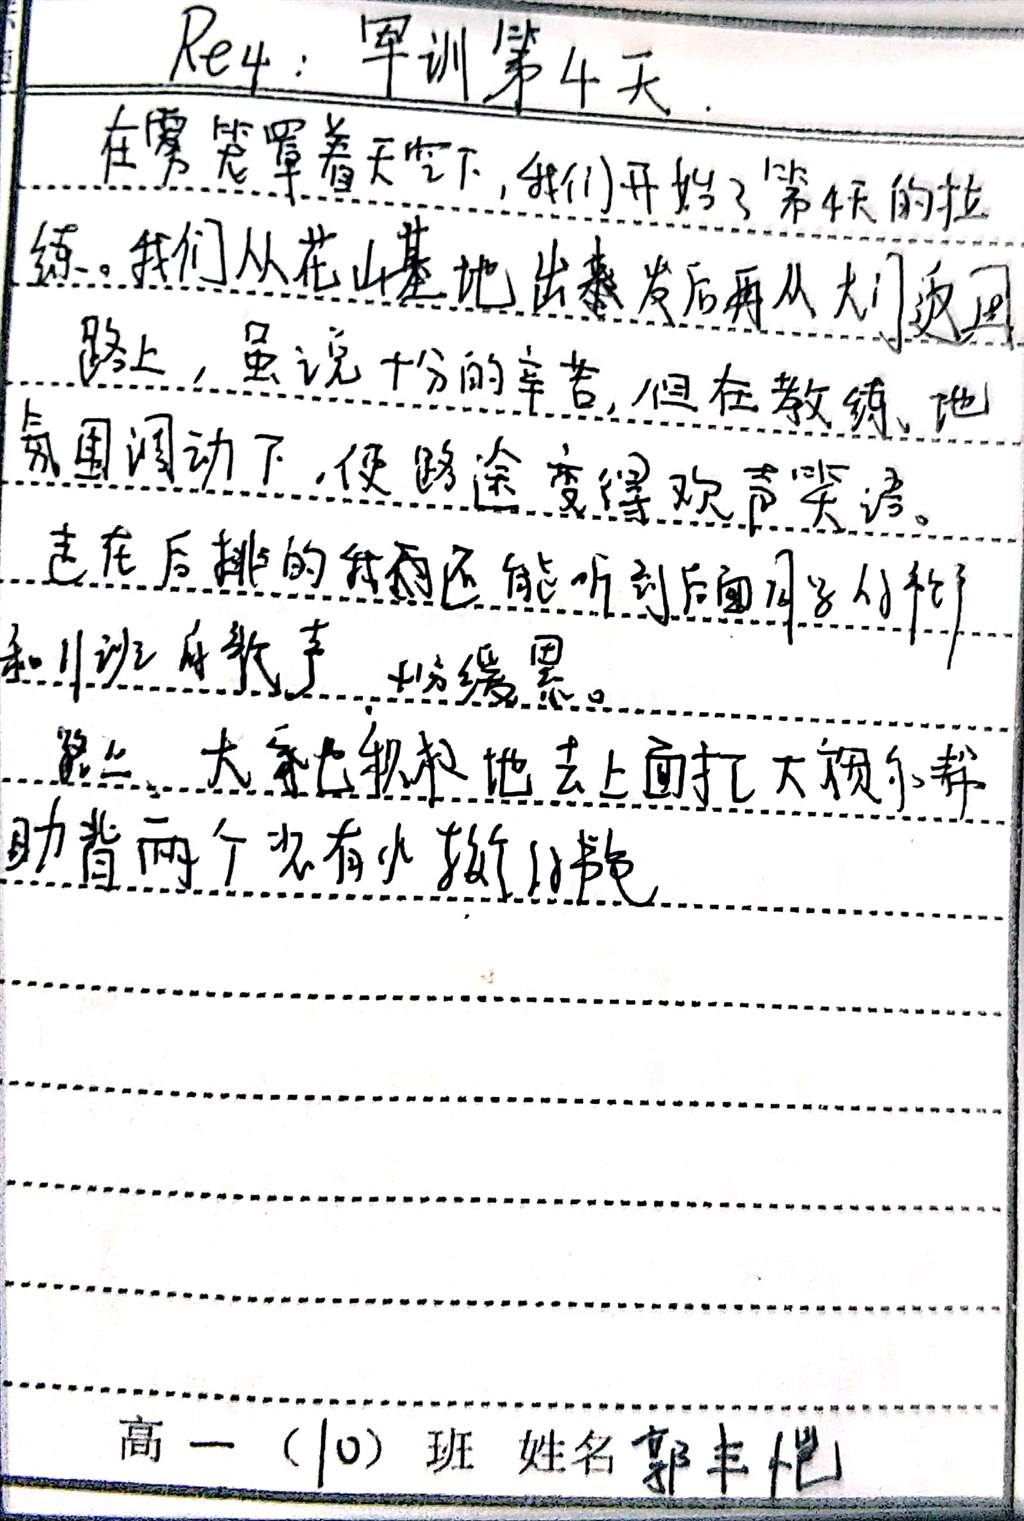 Re4：军训第4天.
在雾笼罩着天空下，我们开始了第4天的拉
练。我们从花山基地出发后再从大门返回
路上，虽说十分的辛苦，但在教练、地
氛围调动下，使路途变得欢声笑语。
走在后排的我还能听到后面同学的
和11班的歌声 十分缓
路上、大家也积极地去上面打大
助背两个
高一（10）班 姓名 郭丰恺